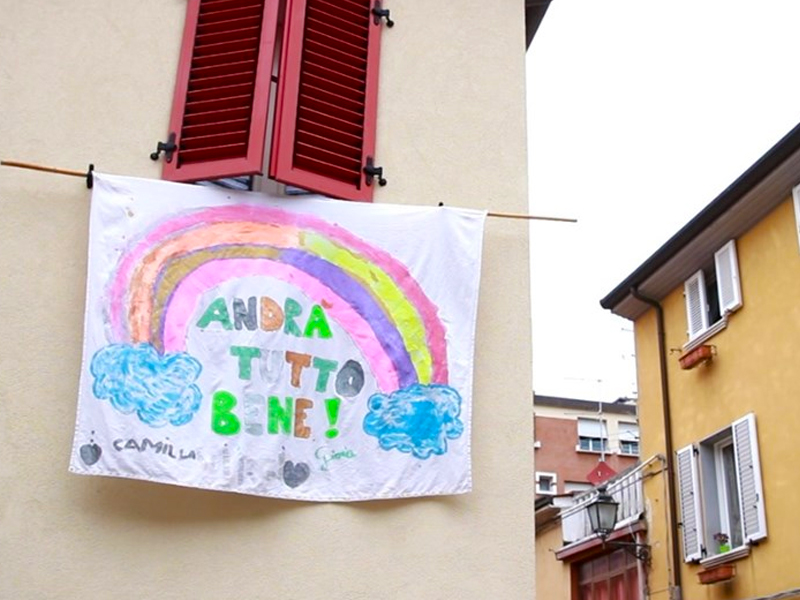 ANDRÀ
TUTTO
BENE!
CAMILLA
Gioia